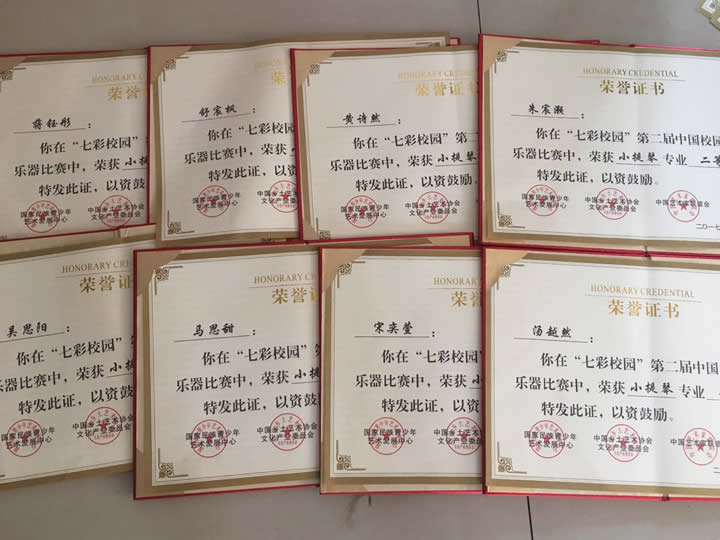 HONORARY C
荣誉
蒋钰彤:
你在“七彩校园”
乐器比赛中,荣获 小
特发此证,以资鼓
国家民族青少年
艺术发展中心
中国乡土艺术协会
文化产业委员会
HONORARY
荣
舒宸枫:
你在“七彩校园”第
乐器比赛中,荣获 小
特发此证,以资鼓
国家民族青少年
艺术发展中心
中国乡土艺术协会
文化产业委员会
HONORARY CRE
荣誉
黄诗然:
你在“七彩校园”第二
乐器比赛中,荣获 小提琴
特发此证,以资鼓励。
国家民族青少年
艺术发展中心
中国乡土艺术协会
文化产业委员会
HONORARY CREDENTIAL
荣誉证书
朱宸灏:
你在“七彩校园”第二届中国校园
乐器比赛中,荣获 小提琴 专业 二等
特发此证,以资鼓励。
国家民族青少年
艺术发展中心
中国乡土艺术协会
文化产业委员会
二〇一七
HONORARY CRED
荣誉
吴思阳:
你在“七彩校园”
乐器比赛中,荣获 小
特发此证,以资鼓
国家民族青少年
艺术发展中心
中国乡土艺术协会
文化产业委员会
HONORARY CRE
荣誉
马思甜:
你在“七彩校园”第
乐器比赛中,荣获 小
特发此证,以资鼓
国家民族青少年
艺术发展中心
中国乡土艺术协会
文化产业委员会
HONORARY
荣
宋奕萱:
你在“七彩校园”第
乐器比赛中,荣获 小提
特发此证,以资鼓励
国家民族青少年
艺术发展中心
中国乡土艺术协会
文化产业委员会
HONORARY CREDENTIAL
荣誉证书
汤越然:
你在“七彩校园”第二届中国
乐器比赛中,荣获 小提琴 专业
特发此证,以资鼓励。
国家民族青少年
艺术发展中心
中国乡土艺术协会
文化产业委员会
二